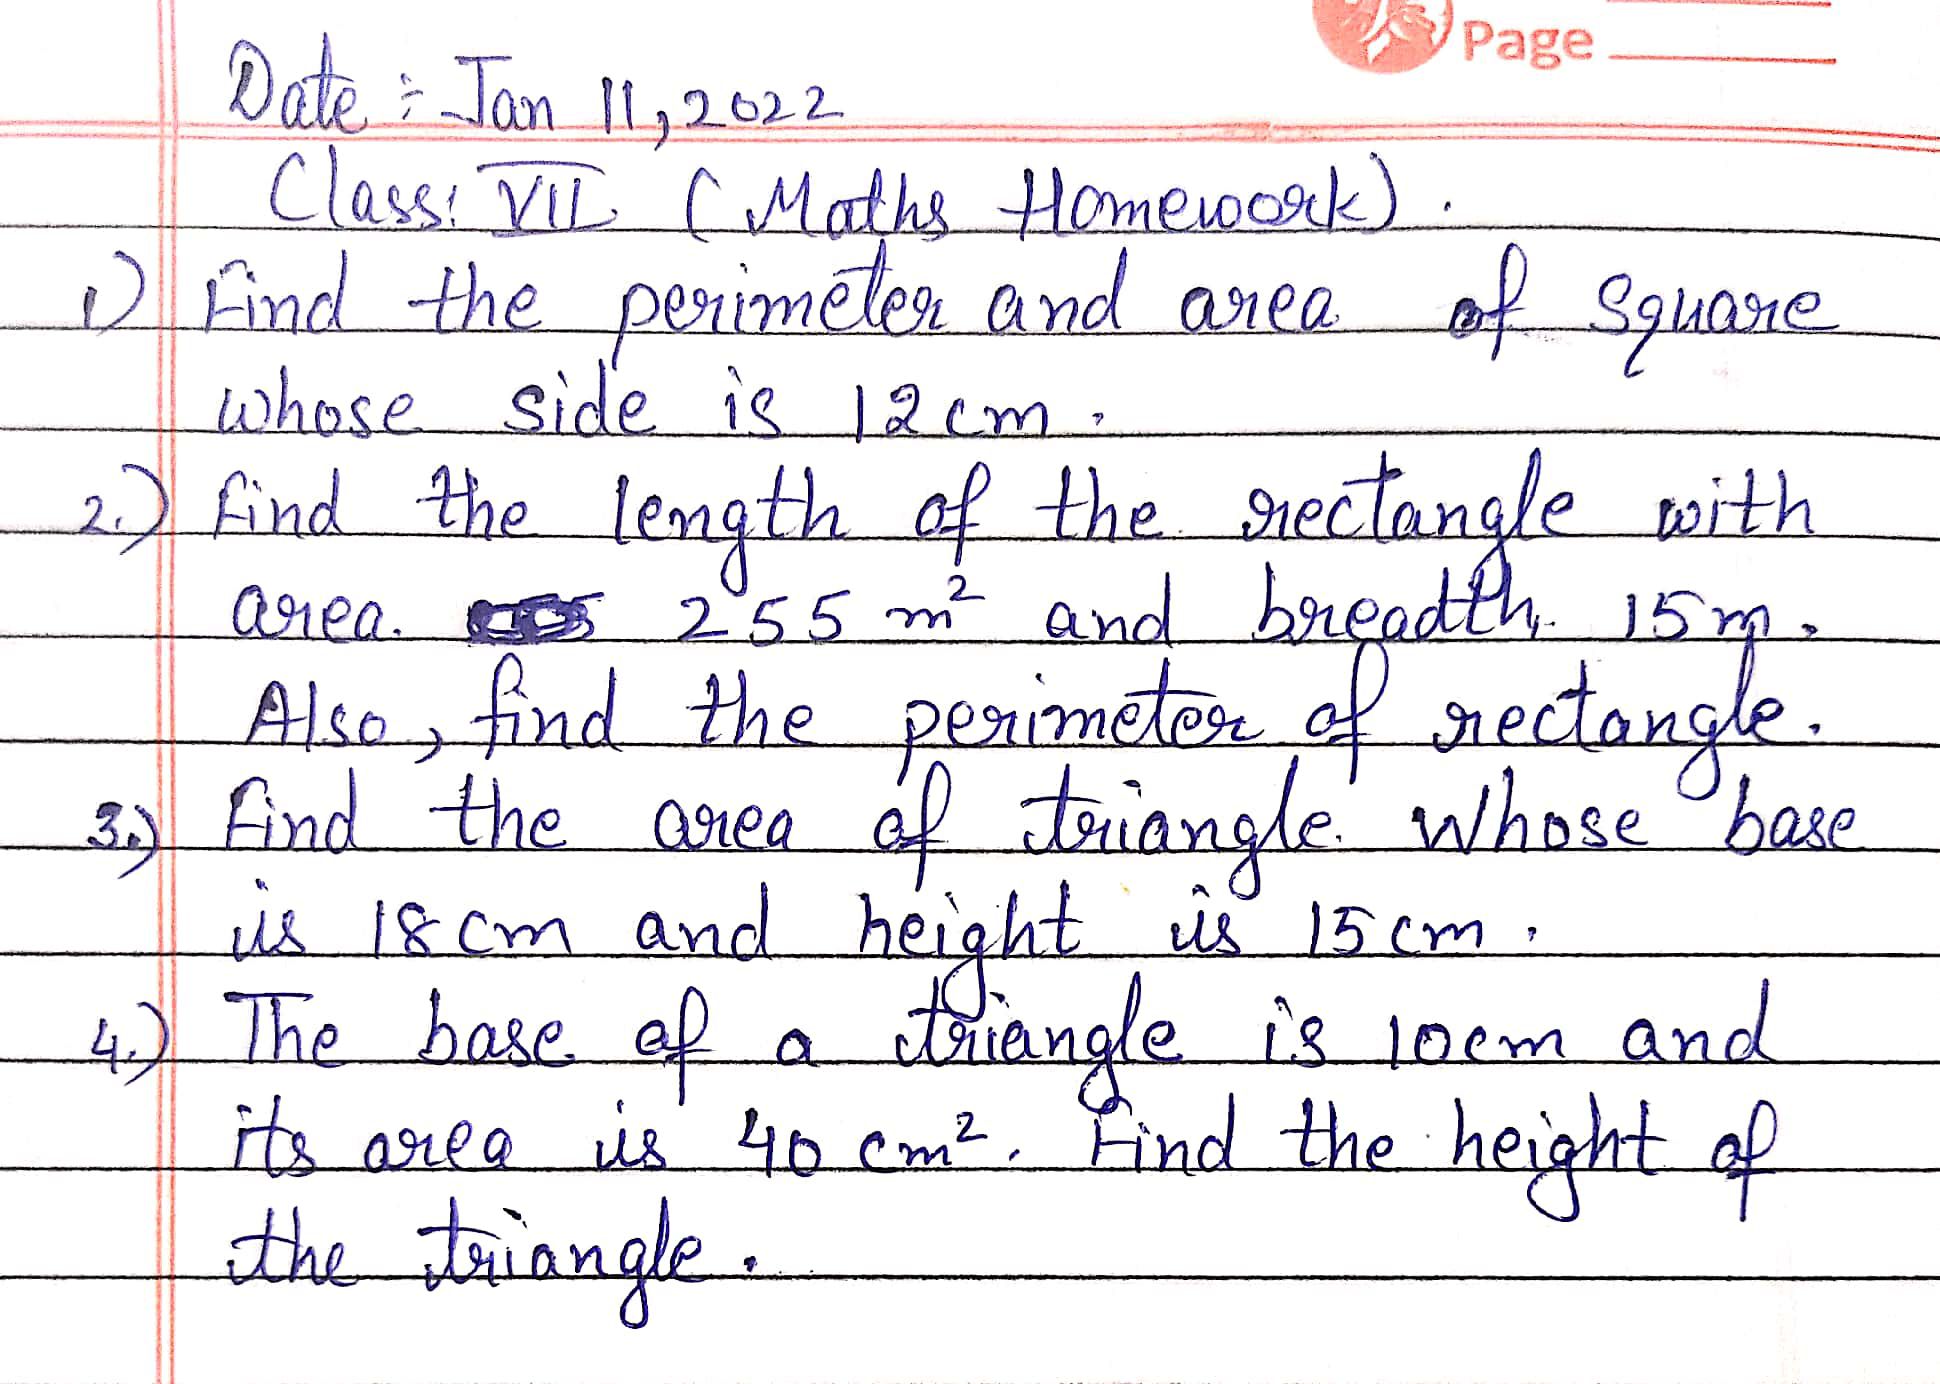 Page
Date : Jan 11, 2022
Class: VII (Maths Homework).
1) Find the perimeter and area of Square
whose side is 12 cm.
2.) Find the length of the rectangle with
area 255 m² and breadth 15 m.
Also, find the perimeter of rectangle.
3.) Find the area of triangle whose base
is 18 cm and height is 15 cm.
4.) The base of a triangle is 10cm and
its area is 40 cm². Find the height of
the triangle.